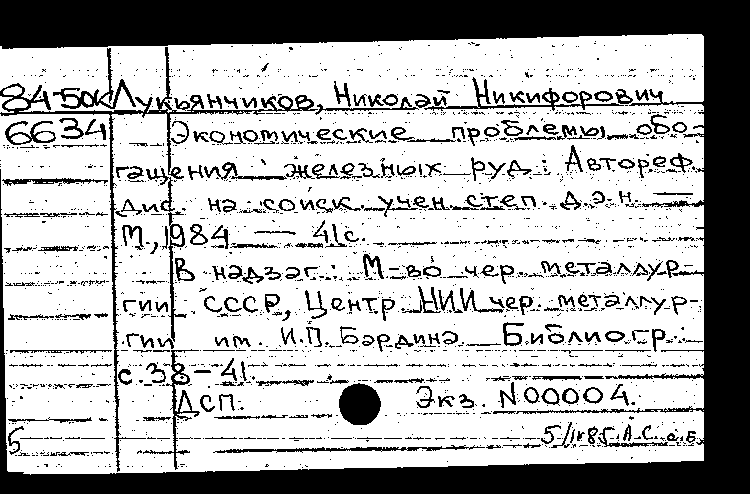 84-50к Лукьянчиков, Николай Никифорович
6634 Экономические проблемы обо-
гащения железных руд : Автореф.
дис. на соиск. учен. степ. д.э.н. —
М., 1984 — 41 с.
В надзаг.: М-во чер. металлур-
гии СССР, Центр. НИИ чер. металлур-
гии им. И.П. Бардина. Библиогр.:
с. 38-41.
ДСП. Экз. N00004.
5